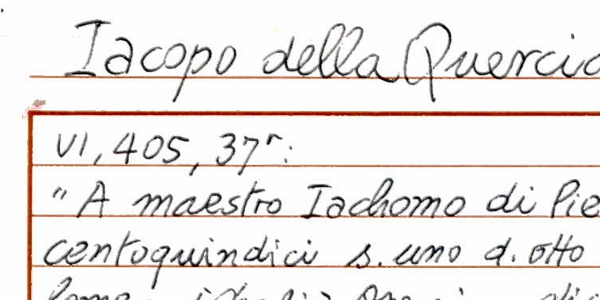 Iacopo della Querci
VI, 405, 37r:
"A maestro Iachomo di Pie
centoquindici s. uno d. otto